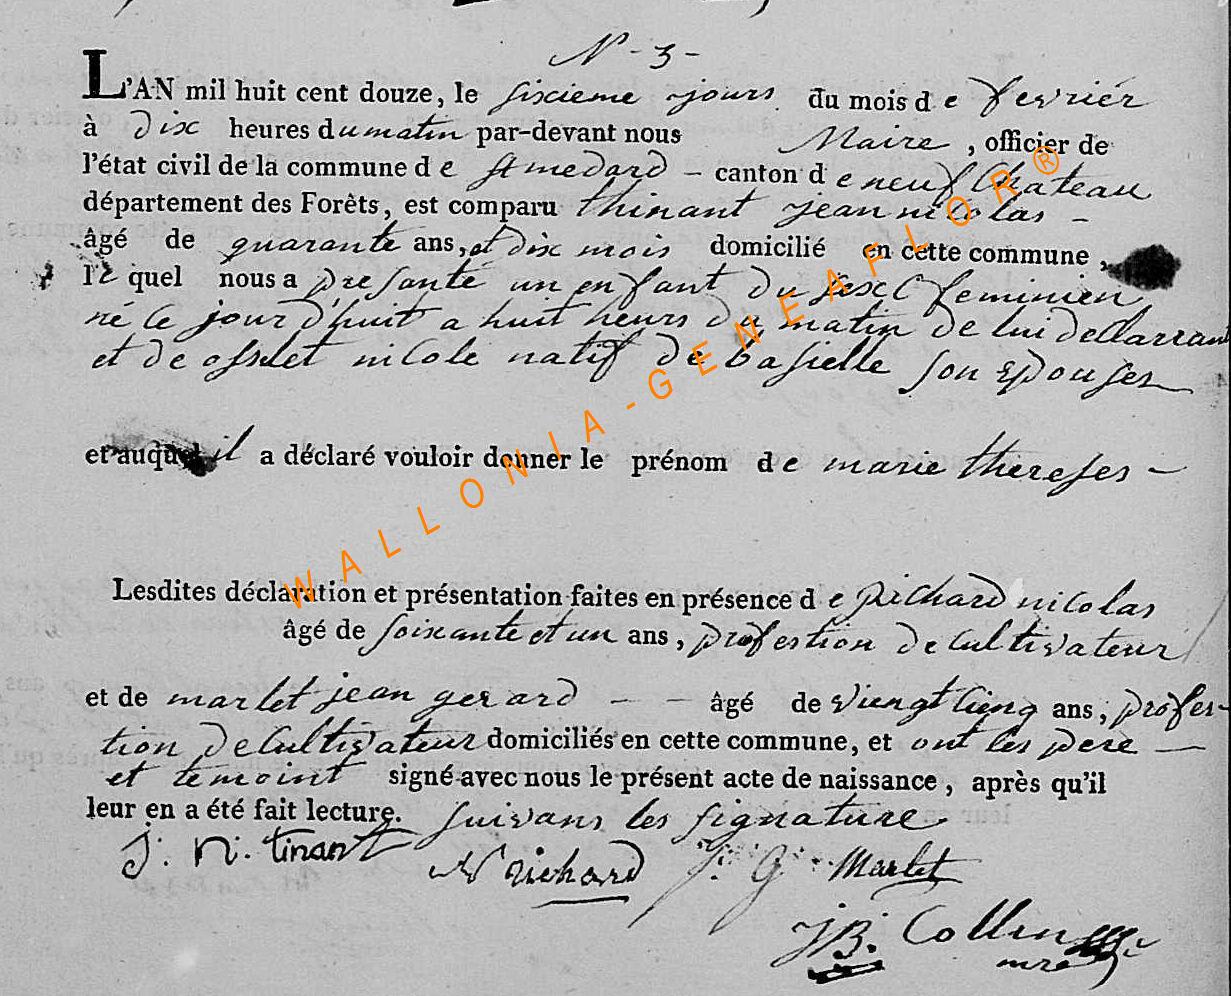 N° 3
L'AN mil huit cent douze, le sixieme jours du mois de fevriér
à dix heures du matin par-devant nous Maire, officier de
l'état civil de la commune de St medard - canton de neufchateau
département des Forêts, est comparu thinant jean nicolas -
âgé de quarante ans, et dix mois domicilié en cette commune,
le quel nous a presanté un enfant du sexe feminien
né ce jour d'huit a huit heurs du matin de lui declarrant
et de osselet nicole natif de basielle son epouses
et auquel il a déclaré vouloir donner le prénom de marie thereses -
Lesdites déclaration et présentation faites en présence de richard nicolas
âgé de soixante et un ans, profestion de cultivateur
et de marlet jean gerard - - âgé de viengt cienq ans, profes-
tion de cultivateur domiciliés en cette commune, et ont les pere -
et temoint signé avec nous le présent acte de naissance, après qu'il
leur en a été fait lecture. suivans les signature
J: N: tinant N richard J: G: Marlet
JB: Collin
mre
WALLONIA-GENEAFLOR®